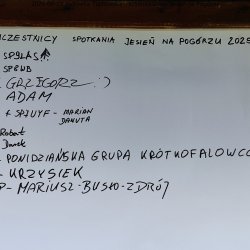 UCZESTNICY SPOTKANIA JESIEŃ NA POGÓRZU 2025
SP9LAS
SP8WB
- GRZEGORZ :)
- ADAM
+ SP1UYF - MARIAN
DANUTA
Robert
Darek
- PONIDZIAŃSKA GRUPA KRÓTKOFALOWCÓ
- KRZYSIEK
P- MARIUSZ-BUSKO-ZDRÓJ